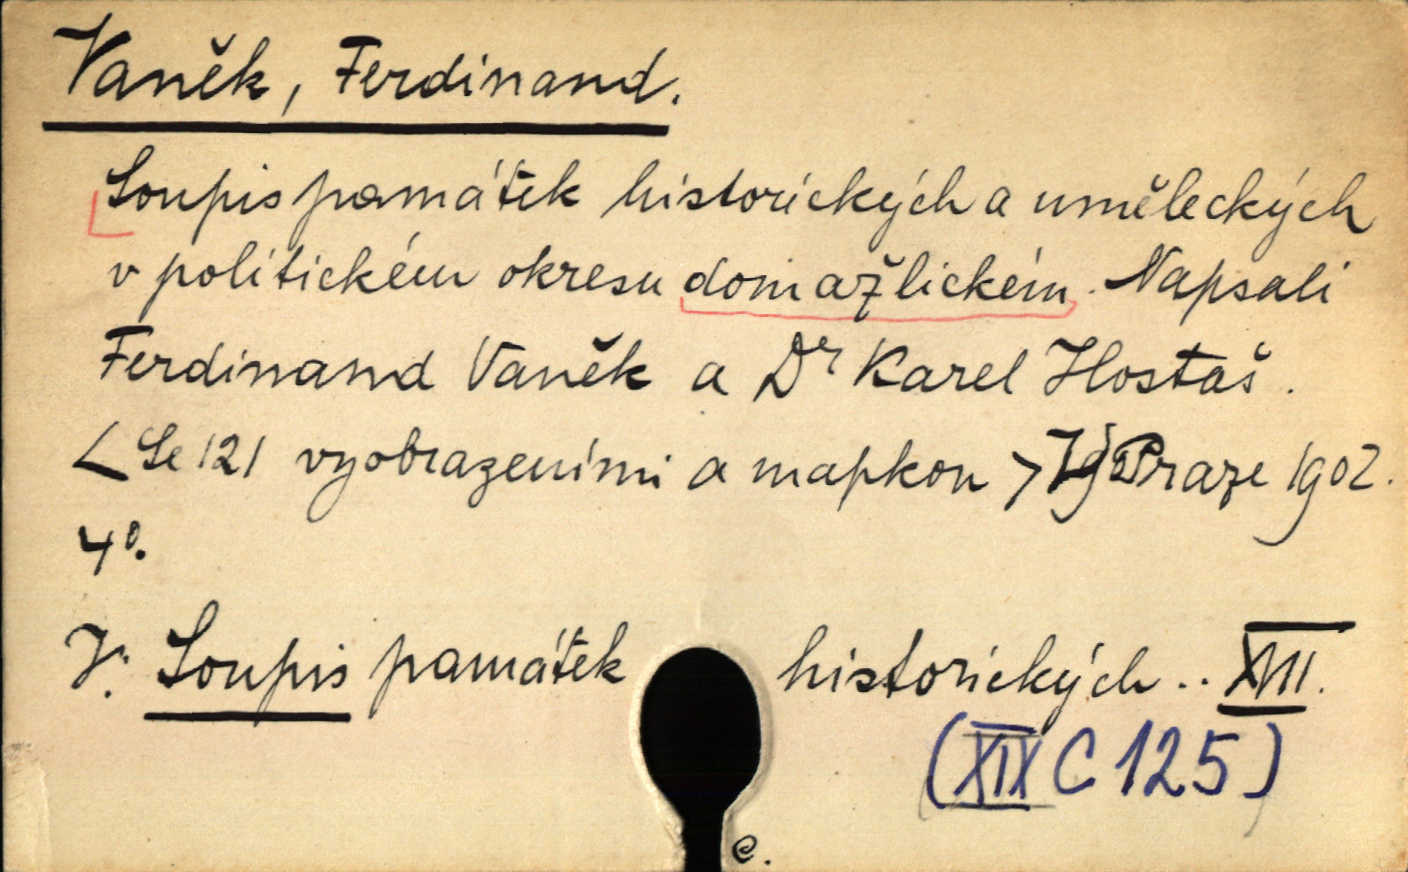 Vaněk, Ferdinand.
Soupis památek historických a uměleckých
v politickém okresu domažlickém. Napsali
Ferdinand Vaněk a Dr Karel Hostaš.
< Se 121 vyobrazeními a mapkou > V Praze 1902.
4°.
V: Soupis památek historických .. XVII.
(XIX C 125)
e.